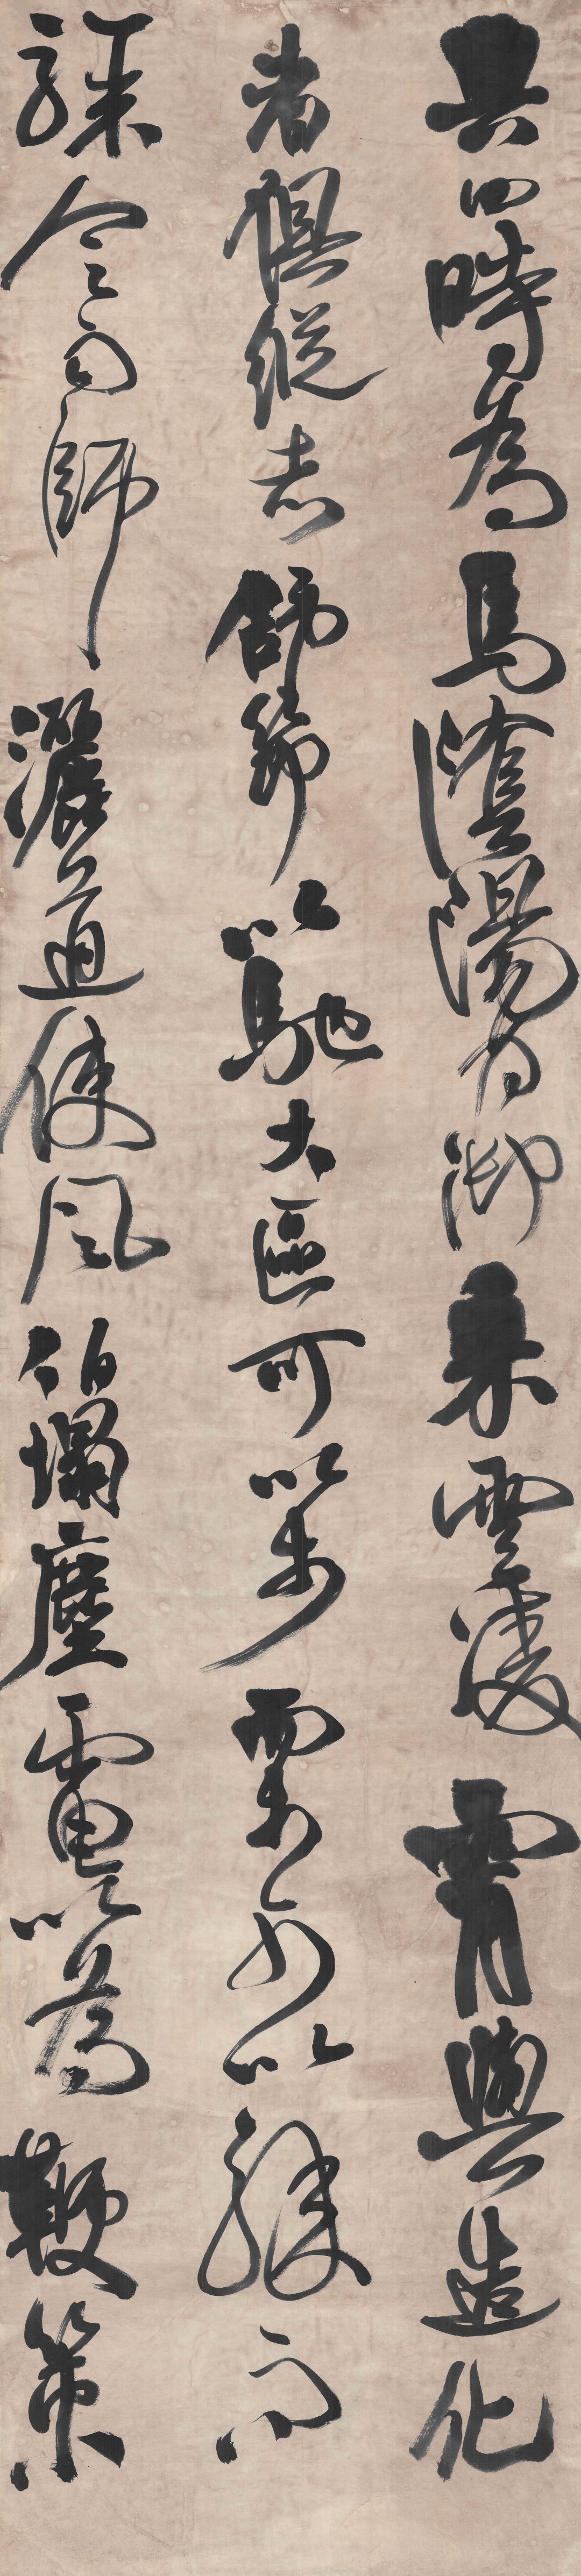 輿四時為馬陰陽為御乘雲凌霄與造化
者俱縱志舒節以馳大區可以步而步可以驟而
驟令雨師灑道使風伯埽塵電以為鞭策